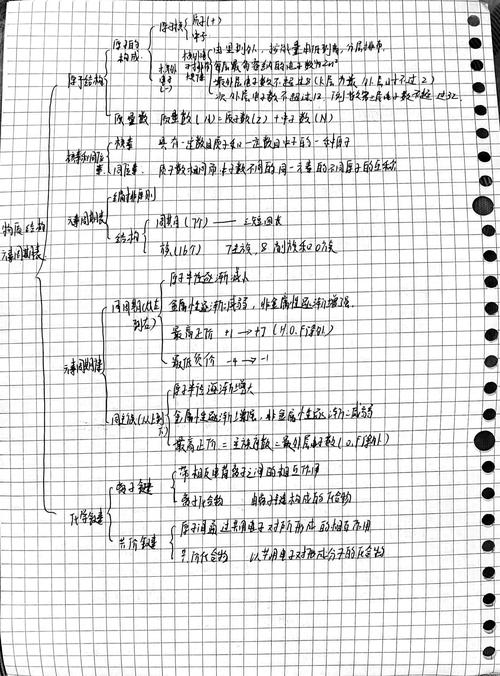 原子核 质子(+)
原子的 中子
构成 由里到外，按能量由低到高，分层排布
核外电 核外电
子 子排布 每层最多容纳的电子数为2n²
(-) 规律 最外层电子数不超过8(K层为最外层时不过2)
原子结构 次外层电子数不超过18，倒数第三层电子数不超过32
质量数 质量数(A)=质子数(Z)+中子数(N)
核素 具有一定数目质子和一定数目中子的一种原子
核素和同位素
同位素 质子数相同而中子数不同的同一元素的不同原子的互称
编排原则
元素周期表
物质结构 周期(7个) — 三短四长
元素周期表 结构
族(16个) 7主族，8 副族和0族
原子半径逐渐减小
同周期(从左 金属性逐渐减弱，非金属性逐渐增强
到右) 最高正价 +1→+7 (H.O.F除外)
最低负价 -4→-1
元素周期律
原子半径逐渐增大
同主族(从上到 金属性逐渐增强，非金属性逐渐减弱
下) 最高正价=主族序数=最外层电子数(O.F除外)
离子键 带相反电荷离子之间的相互作用
离子化合物 由离子键构成的化合物
化学键
共价键 原子间通过共用电子对所形成的相互作用
共价化合物 以共用电子对形成分子的化合物